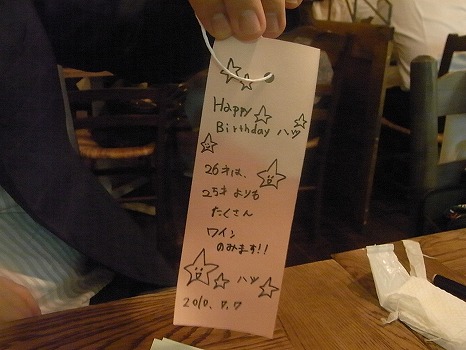 Happy
Birthday ハツ
26才は、
25才よりも
たくさん
ワイン
のみます!!
ハツ
2010.7.7